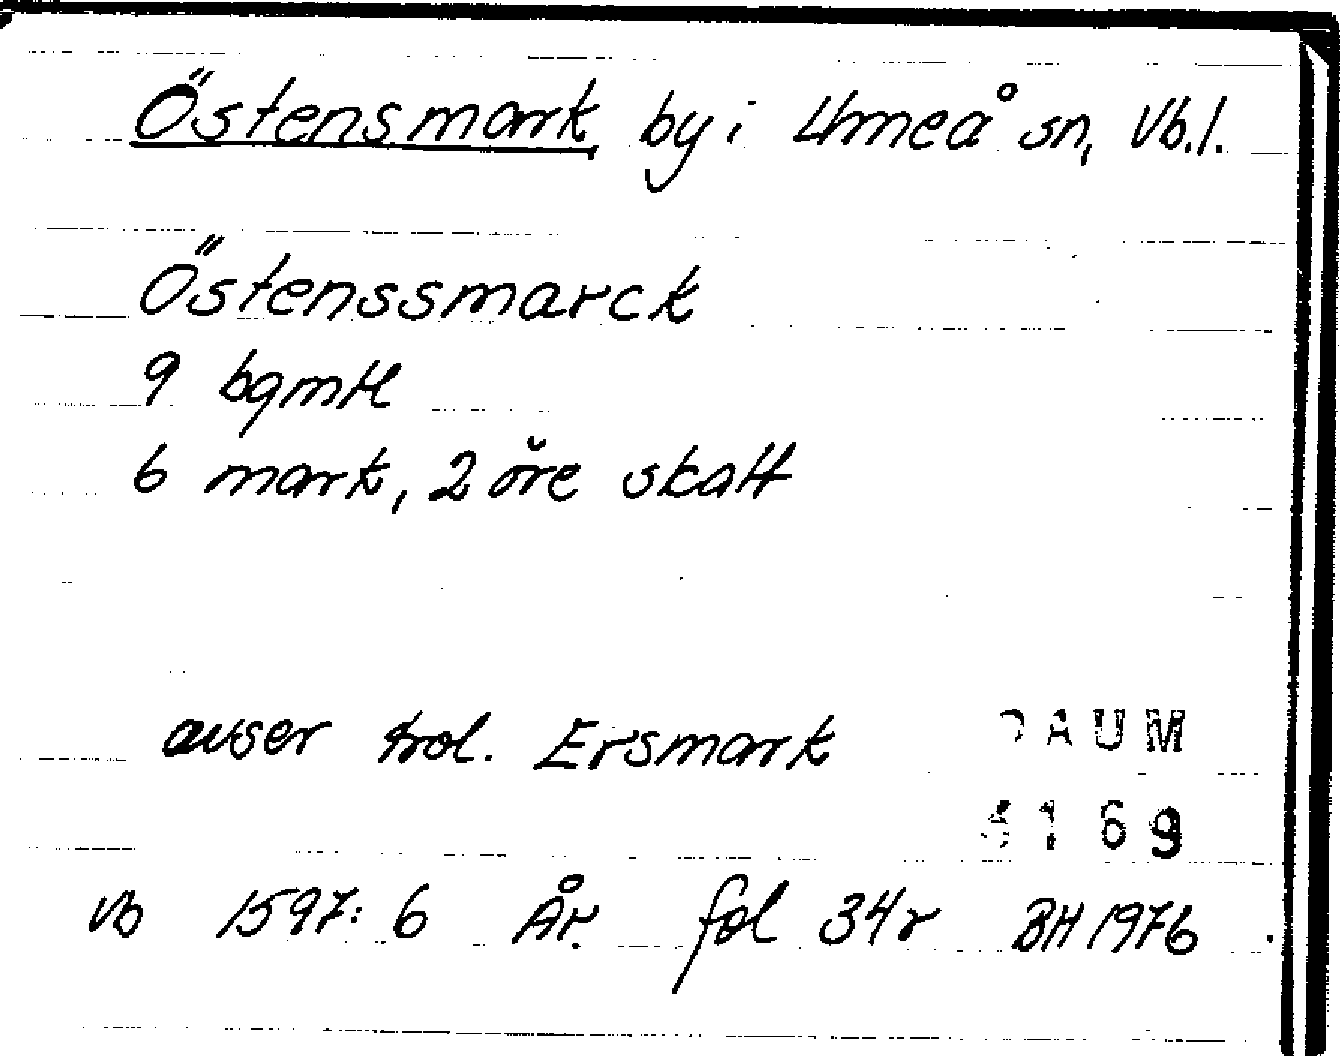 Östensmark by i Umeå sn, Vb.l.
Östenssmarck
9 bgmtl
6 mark, 2 öre skatt
avser trol. Ersmark
DAUM
5169
Vb 1597:6 År. fol 34r BH 1976